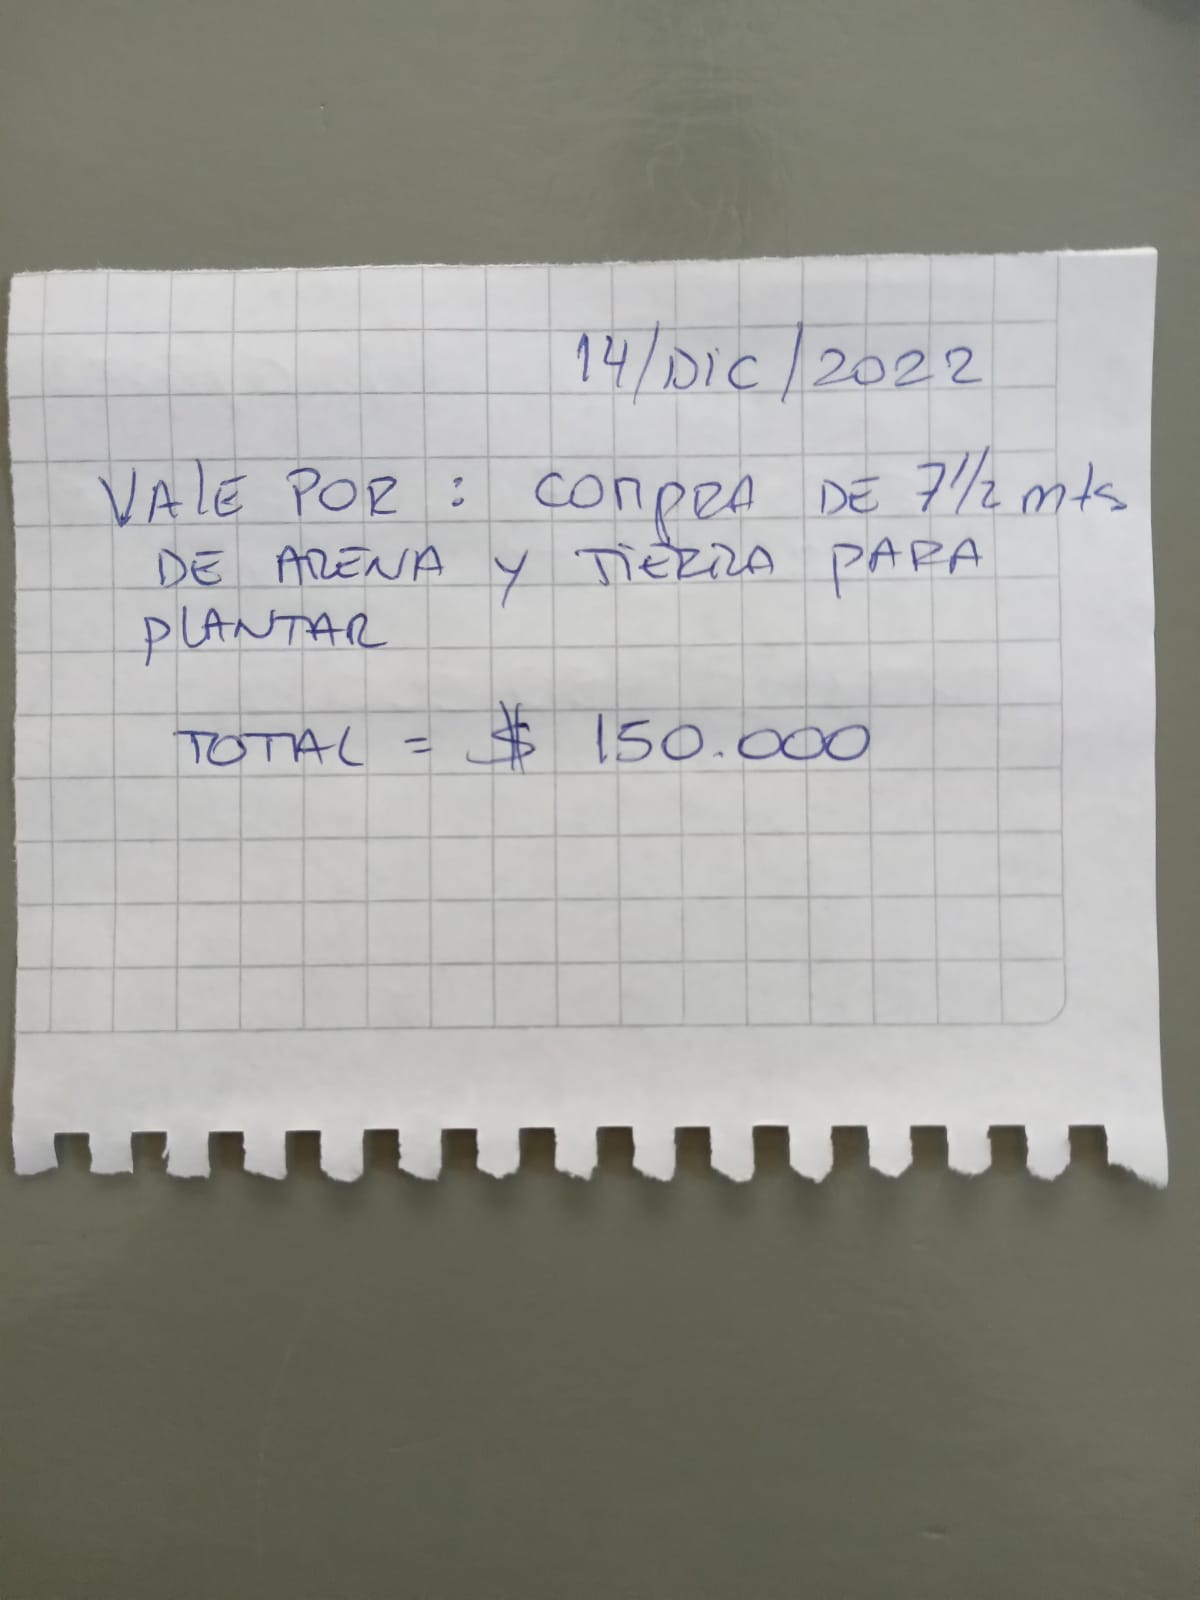 14/DIC/2022
VALE POR : COMPRA DE 7 1/2 mts
DE ARENA Y TIERRA PARA
PLANTAR
TOTAL = $ 150.000